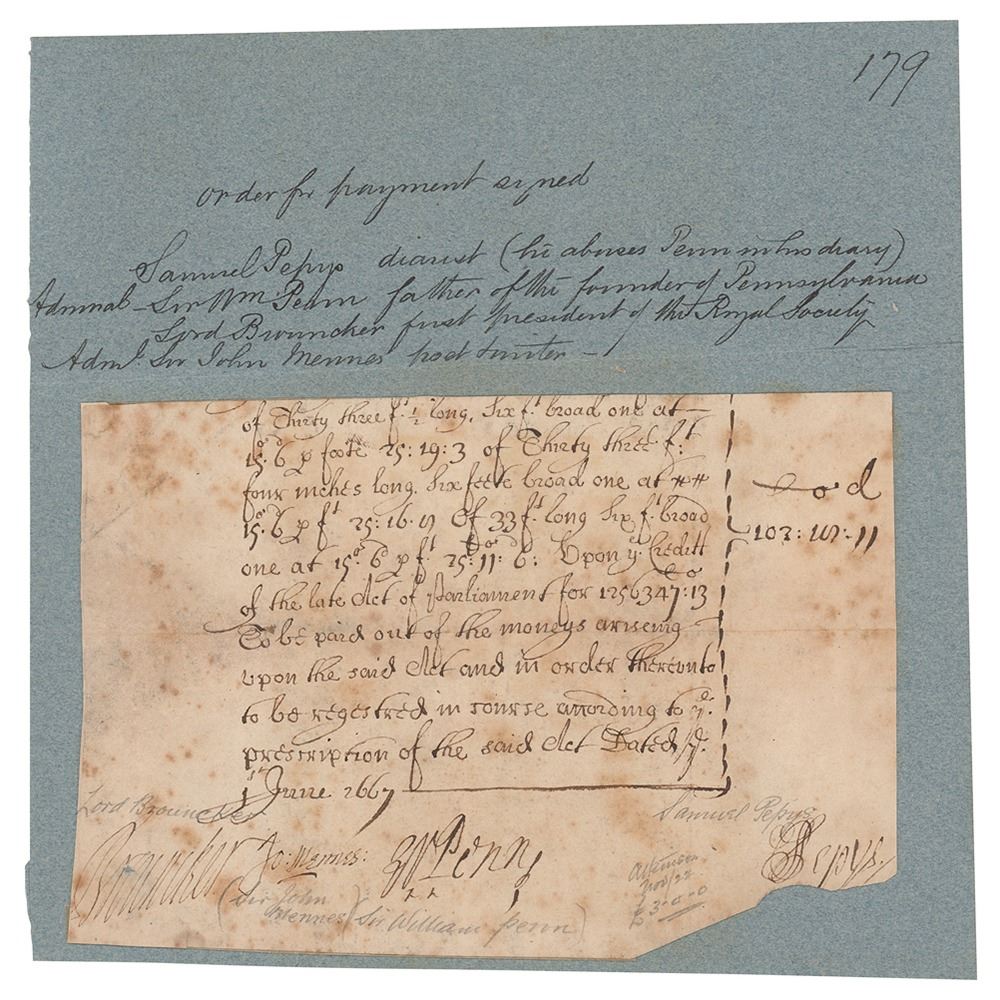 179
order for payment signed
Samuel Pepys diarist (he abuses Penn in his diary)
Admiral - Sir Wm Penn father of the founder of Pennsylvania
Lord Brouncker first president of the Royal Society
Adml. Sir John Mennes poet
of Thirty three f.t ½ long, Six f.t broad one at
15s: 6d p foote 25: 19: 3 of Thirty three f.t
four inches long. Six feete broad one at
15s. 6d p f.t 25: 16. Of 33 f.t long Six f.t broad
one at 15s 6d p f.t 25: 11: 6: Upon ye. Creditt
of the late Act of Parliament for 1256347: 13
To be paid out of the moneys ariseing
upon the said Act and in order thereunto
to be regestred in course according to ye.
prescription of the said Act Dated ye.
1st June 1667
s d
103: 11
Lord Brouncker
Samuel Pepys
Brouncker Jo: Mennes: WPenn SPepys.
(Sir John Mennes) Sir William Penn)
£3-0-0